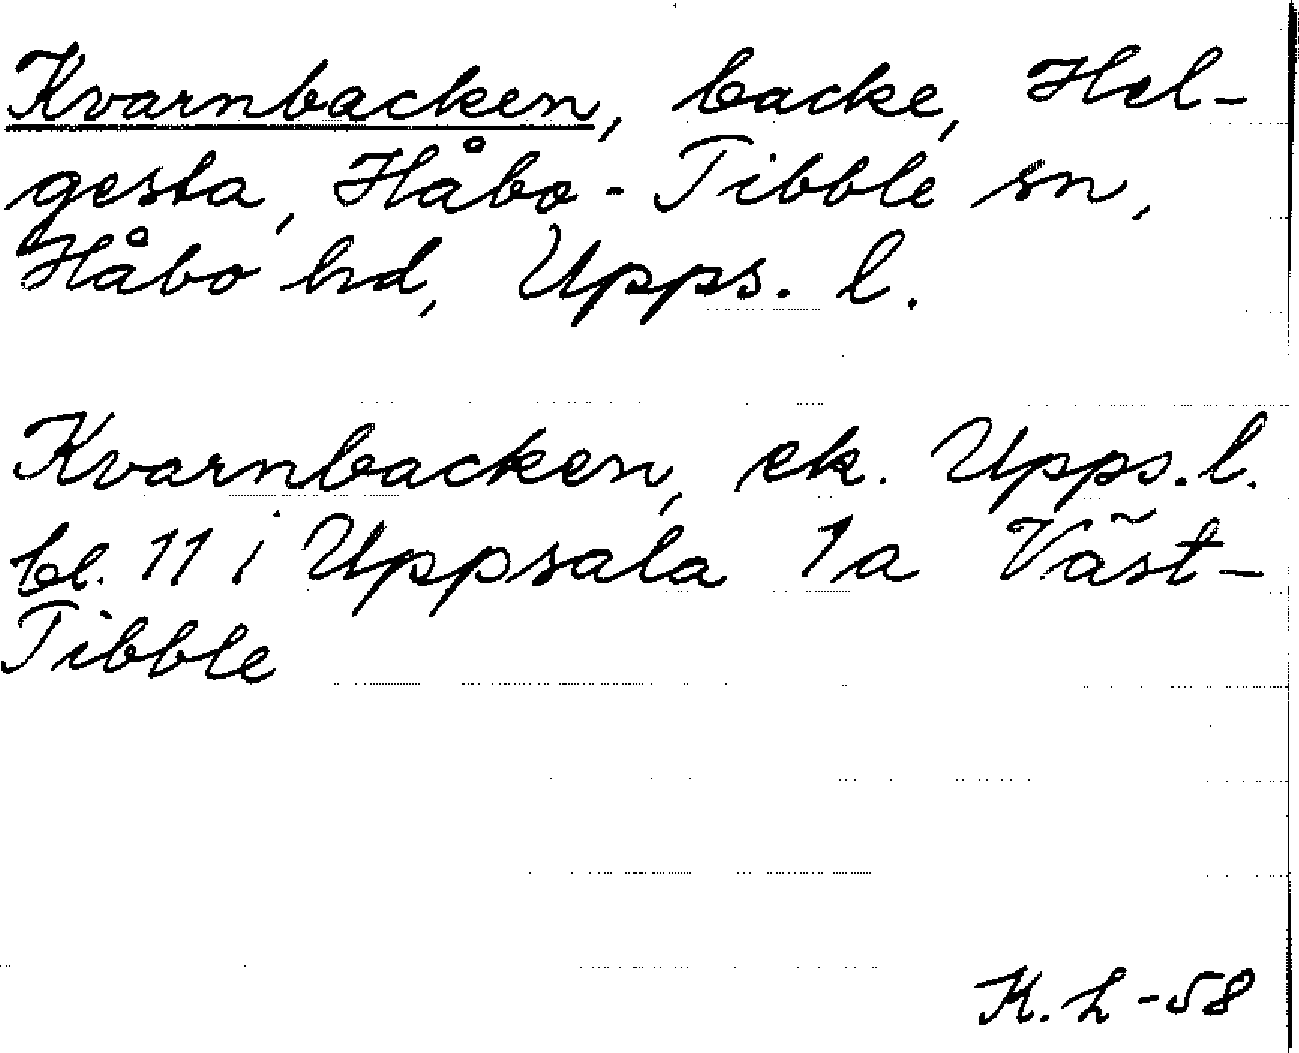 Kvarnbacken, backe, Hel-
gesta, Håbo-Tibble sn,
Håbo hd, Upps. l.
Kvarnbacken, ek. Upps. l.
bl. 11 i Uppsala 1a Väst-
Tibble
K. L -58